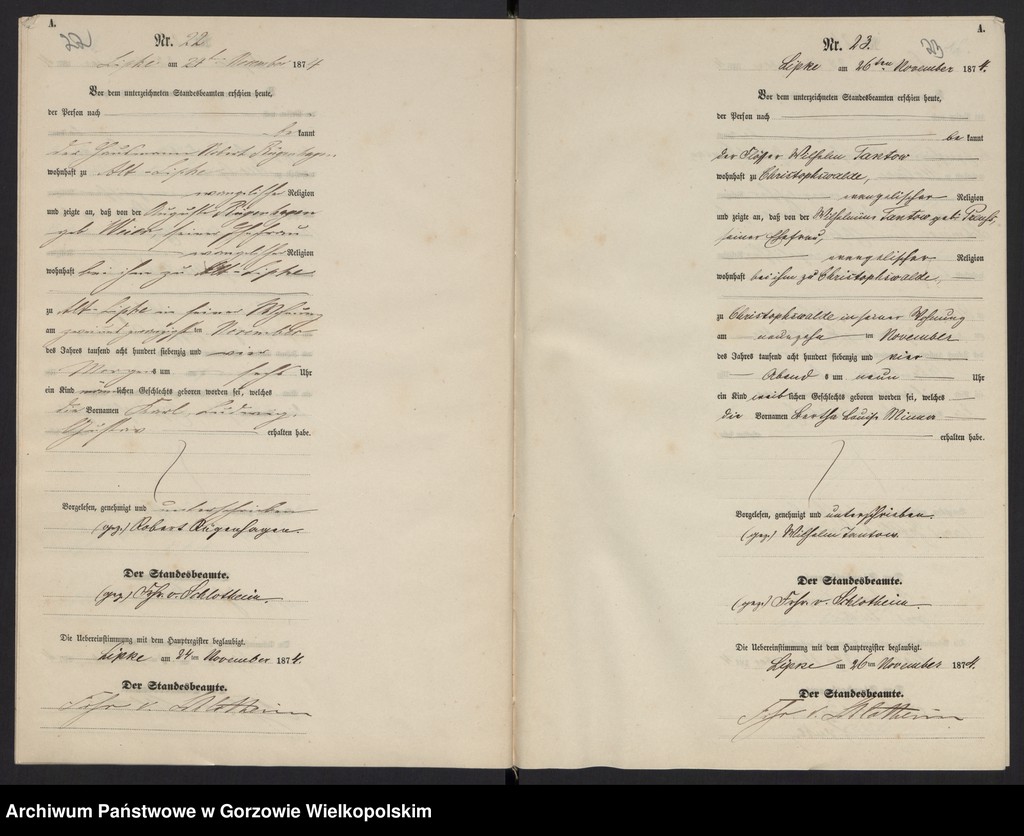 A.
22
Nr. 22
Lipke am 24ten November 1874
Vor dem unterzeichneten Standesbeamten erschien heute,
der Person nach
be kannt
der Robert Rügenhagen
wohnhaft zu Alt-Lipke
evangelischer Religion
und zeigte an, daß von der Auguste Rügenhagen
geb. seiner Ehefrau
evangelischer Religion
wohnhaft bei ihm zu Alt-Lipke
zu Alt-Lipke in seiner Wohnung
am November
des Jahres tausend acht hundert siebenzig und vier
Morgens um sechs Uhr
ein Kind männlichen Geschlechts geboren worden sei, welches
die Vornamen Karl Ludwig
Gustav erhalten habe.
Vorgelesen, genehmigt und unterschrieben
(gez.) Robert Rügenhagen.
Der Standesbeamte.
(gez.) Frhr. v. Schlotheim.
Die Uebereinstimmung mit dem Hauptregister beglaubigt.
Lipke am 24ten November 1874.
Der Standesbeamte.
Frhr v. Schlotheim
A.
23
Nr. 23.
Lipke am 26ten November 1874.
Vor dem unterzeichneten Standesbeamten erschien heute,
der Person nach
be kannt
der Flösser Wilhelm Tantow
wohnhaft zu Christophswalde,
evangelischer Religion
und zeigte an, daß von der Wilhelmine Tantow geb.
seiner Ehefrau,
evangelischer Religion
wohnhaft bei ihm zu Christophswalde,
zu Christophswalde in seiner Wohnung
am neunzehn ten November
des Jahres tausend acht hundert siebenzig und vier
Abend s um neun Uhr
ein Kind weiblichen Geschlechts geboren worden sei, welches
die Vornamen Bertha Louise Minna
erhalten habe.
Vorgelesen, genehmigt und unterschrieben.
(gez.) Wilhelm Tantow.
Der Standesbeamte.
(gez.) Frhr. v. Schlotheim.
Die Uebereinstimmung mit dem Hauptregister beglaubigt.
Lipke am 26ten November 1874.
Der Standesbeamte.
Frhr v. Schlotheim
Archiwum Państwowe w Gorzowie Wielkopolskim